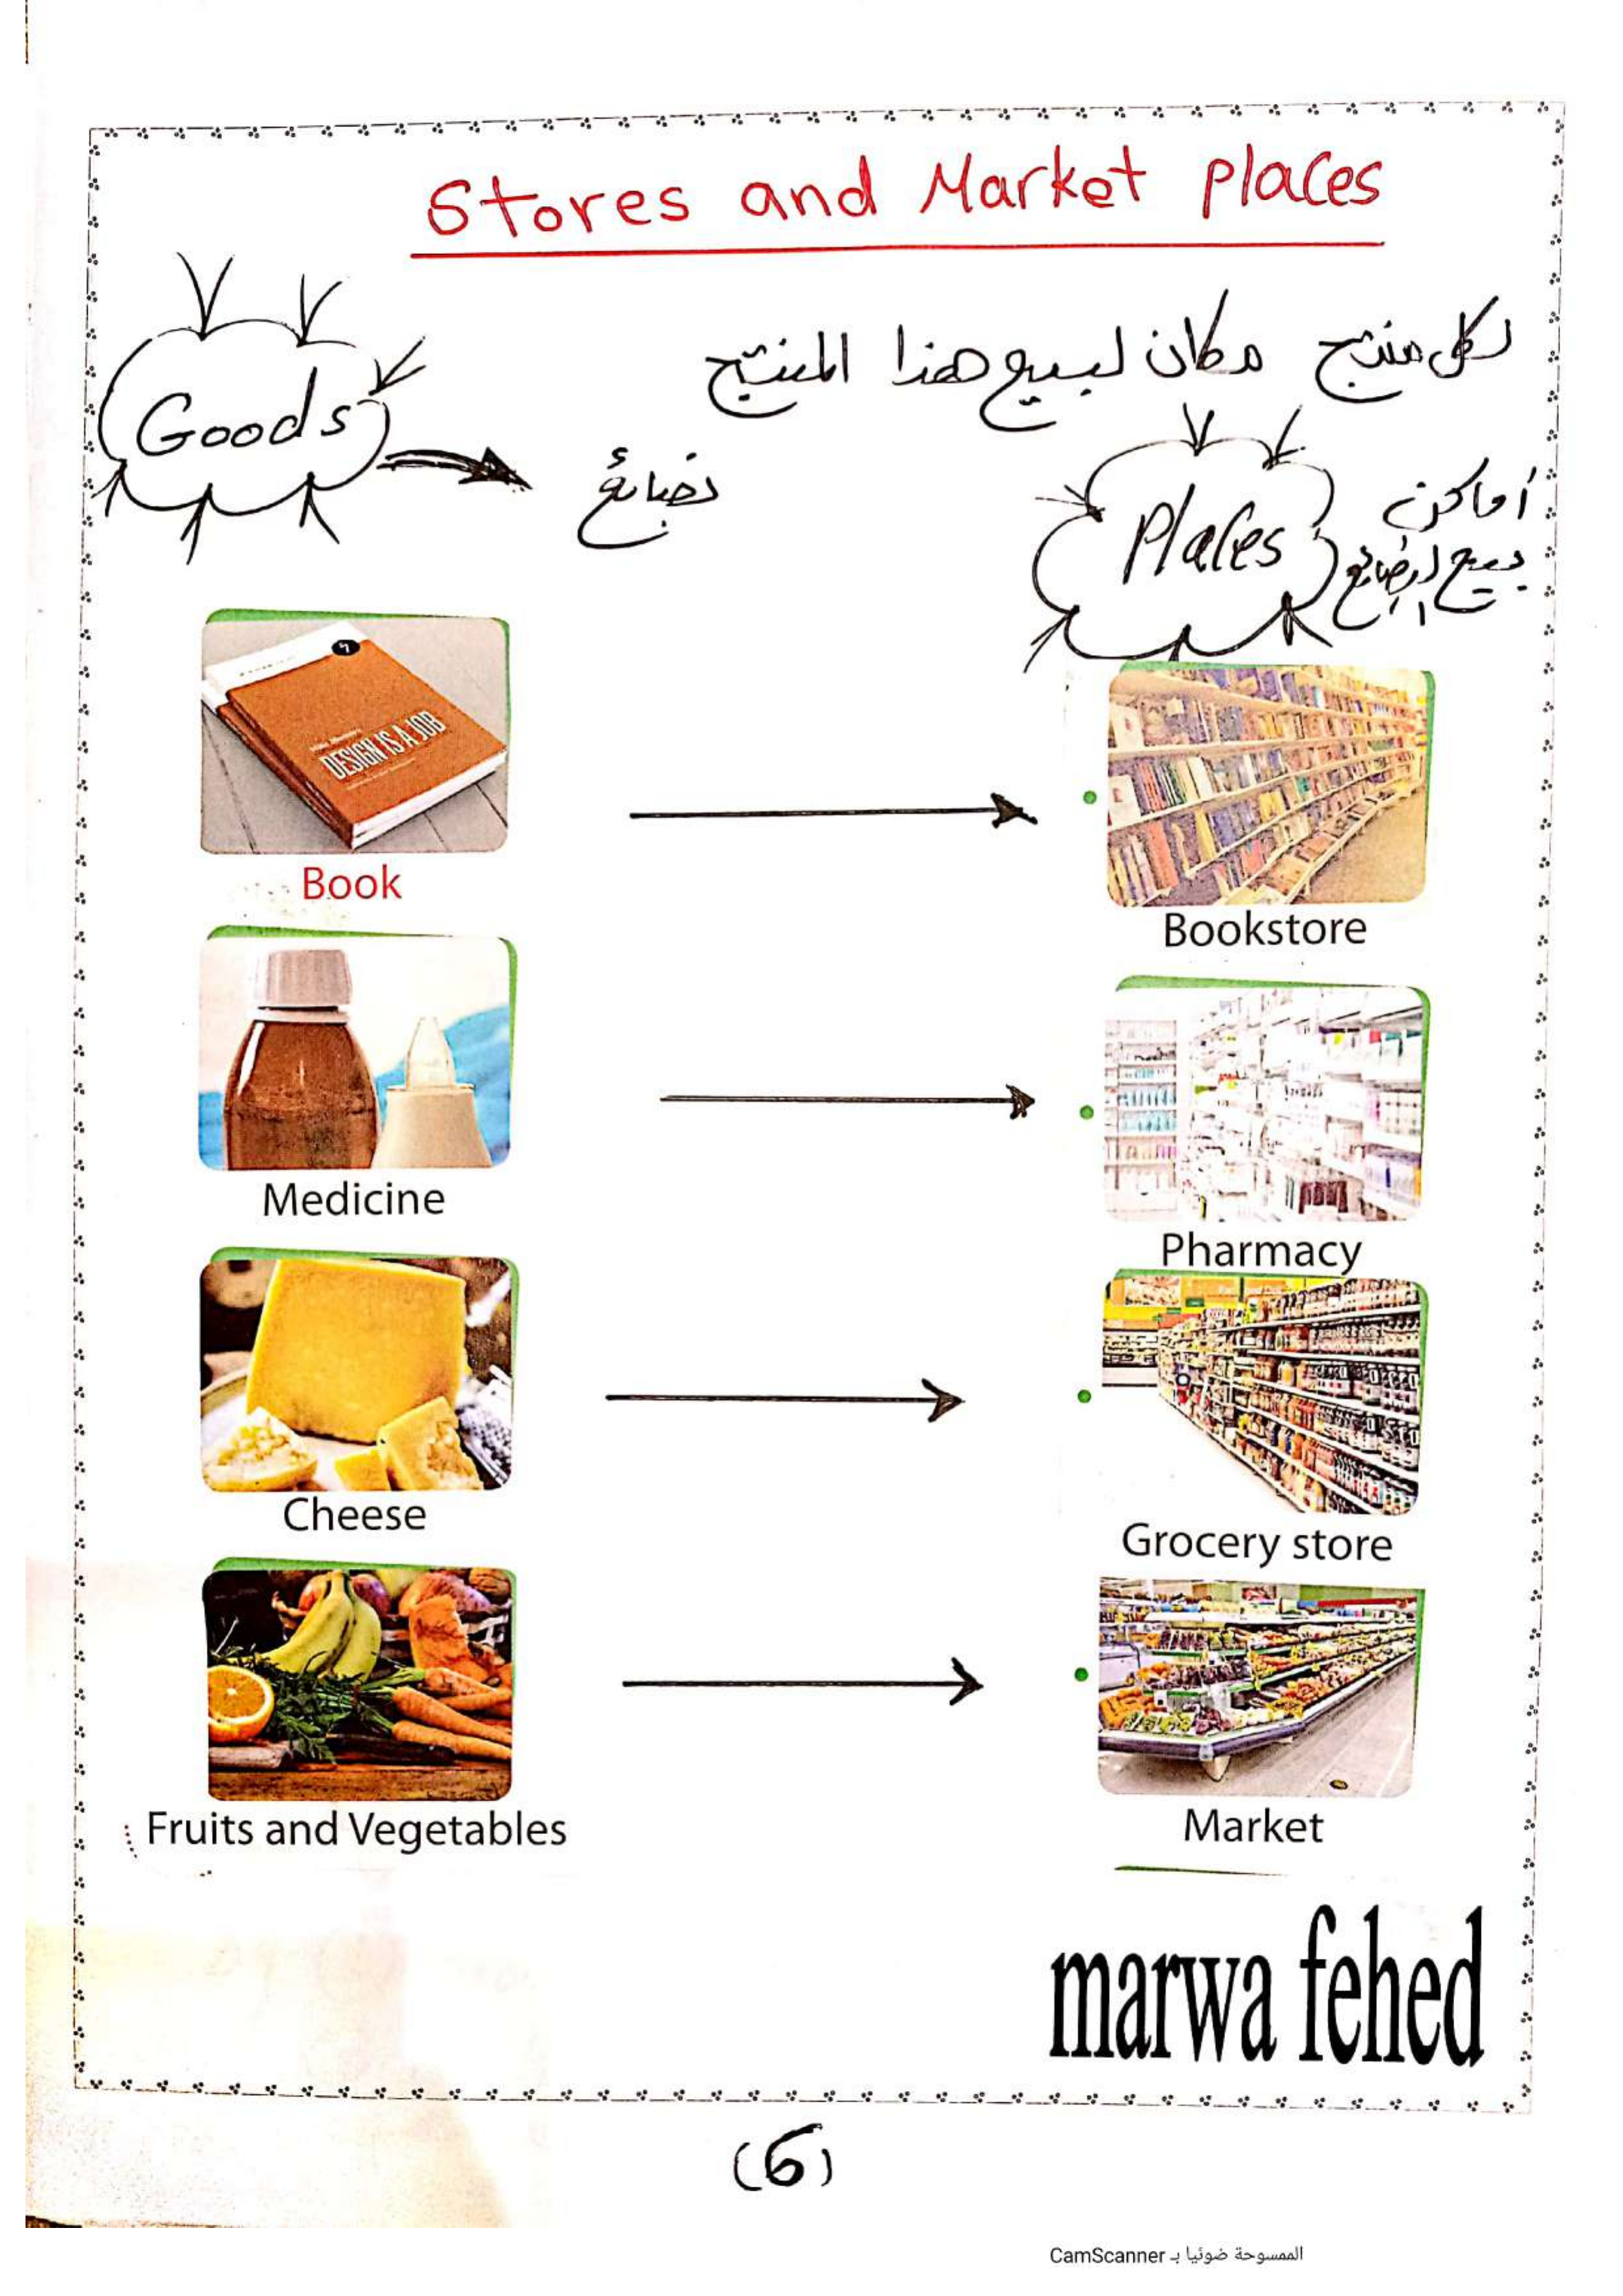 Stores and Market places
لكل منتج مكان لبيع هذا المنتج
Goods
بضائع
Places
أماكن
بيع البضائع
DESIGN IS A JOB
Book
Bookstore
Medicine
Pharmacy
Cheese
Grocery store
Fruits and Vegetables
Market
marwa fehed
(6)
الممسوحة ضوئيا بـ CamScanner